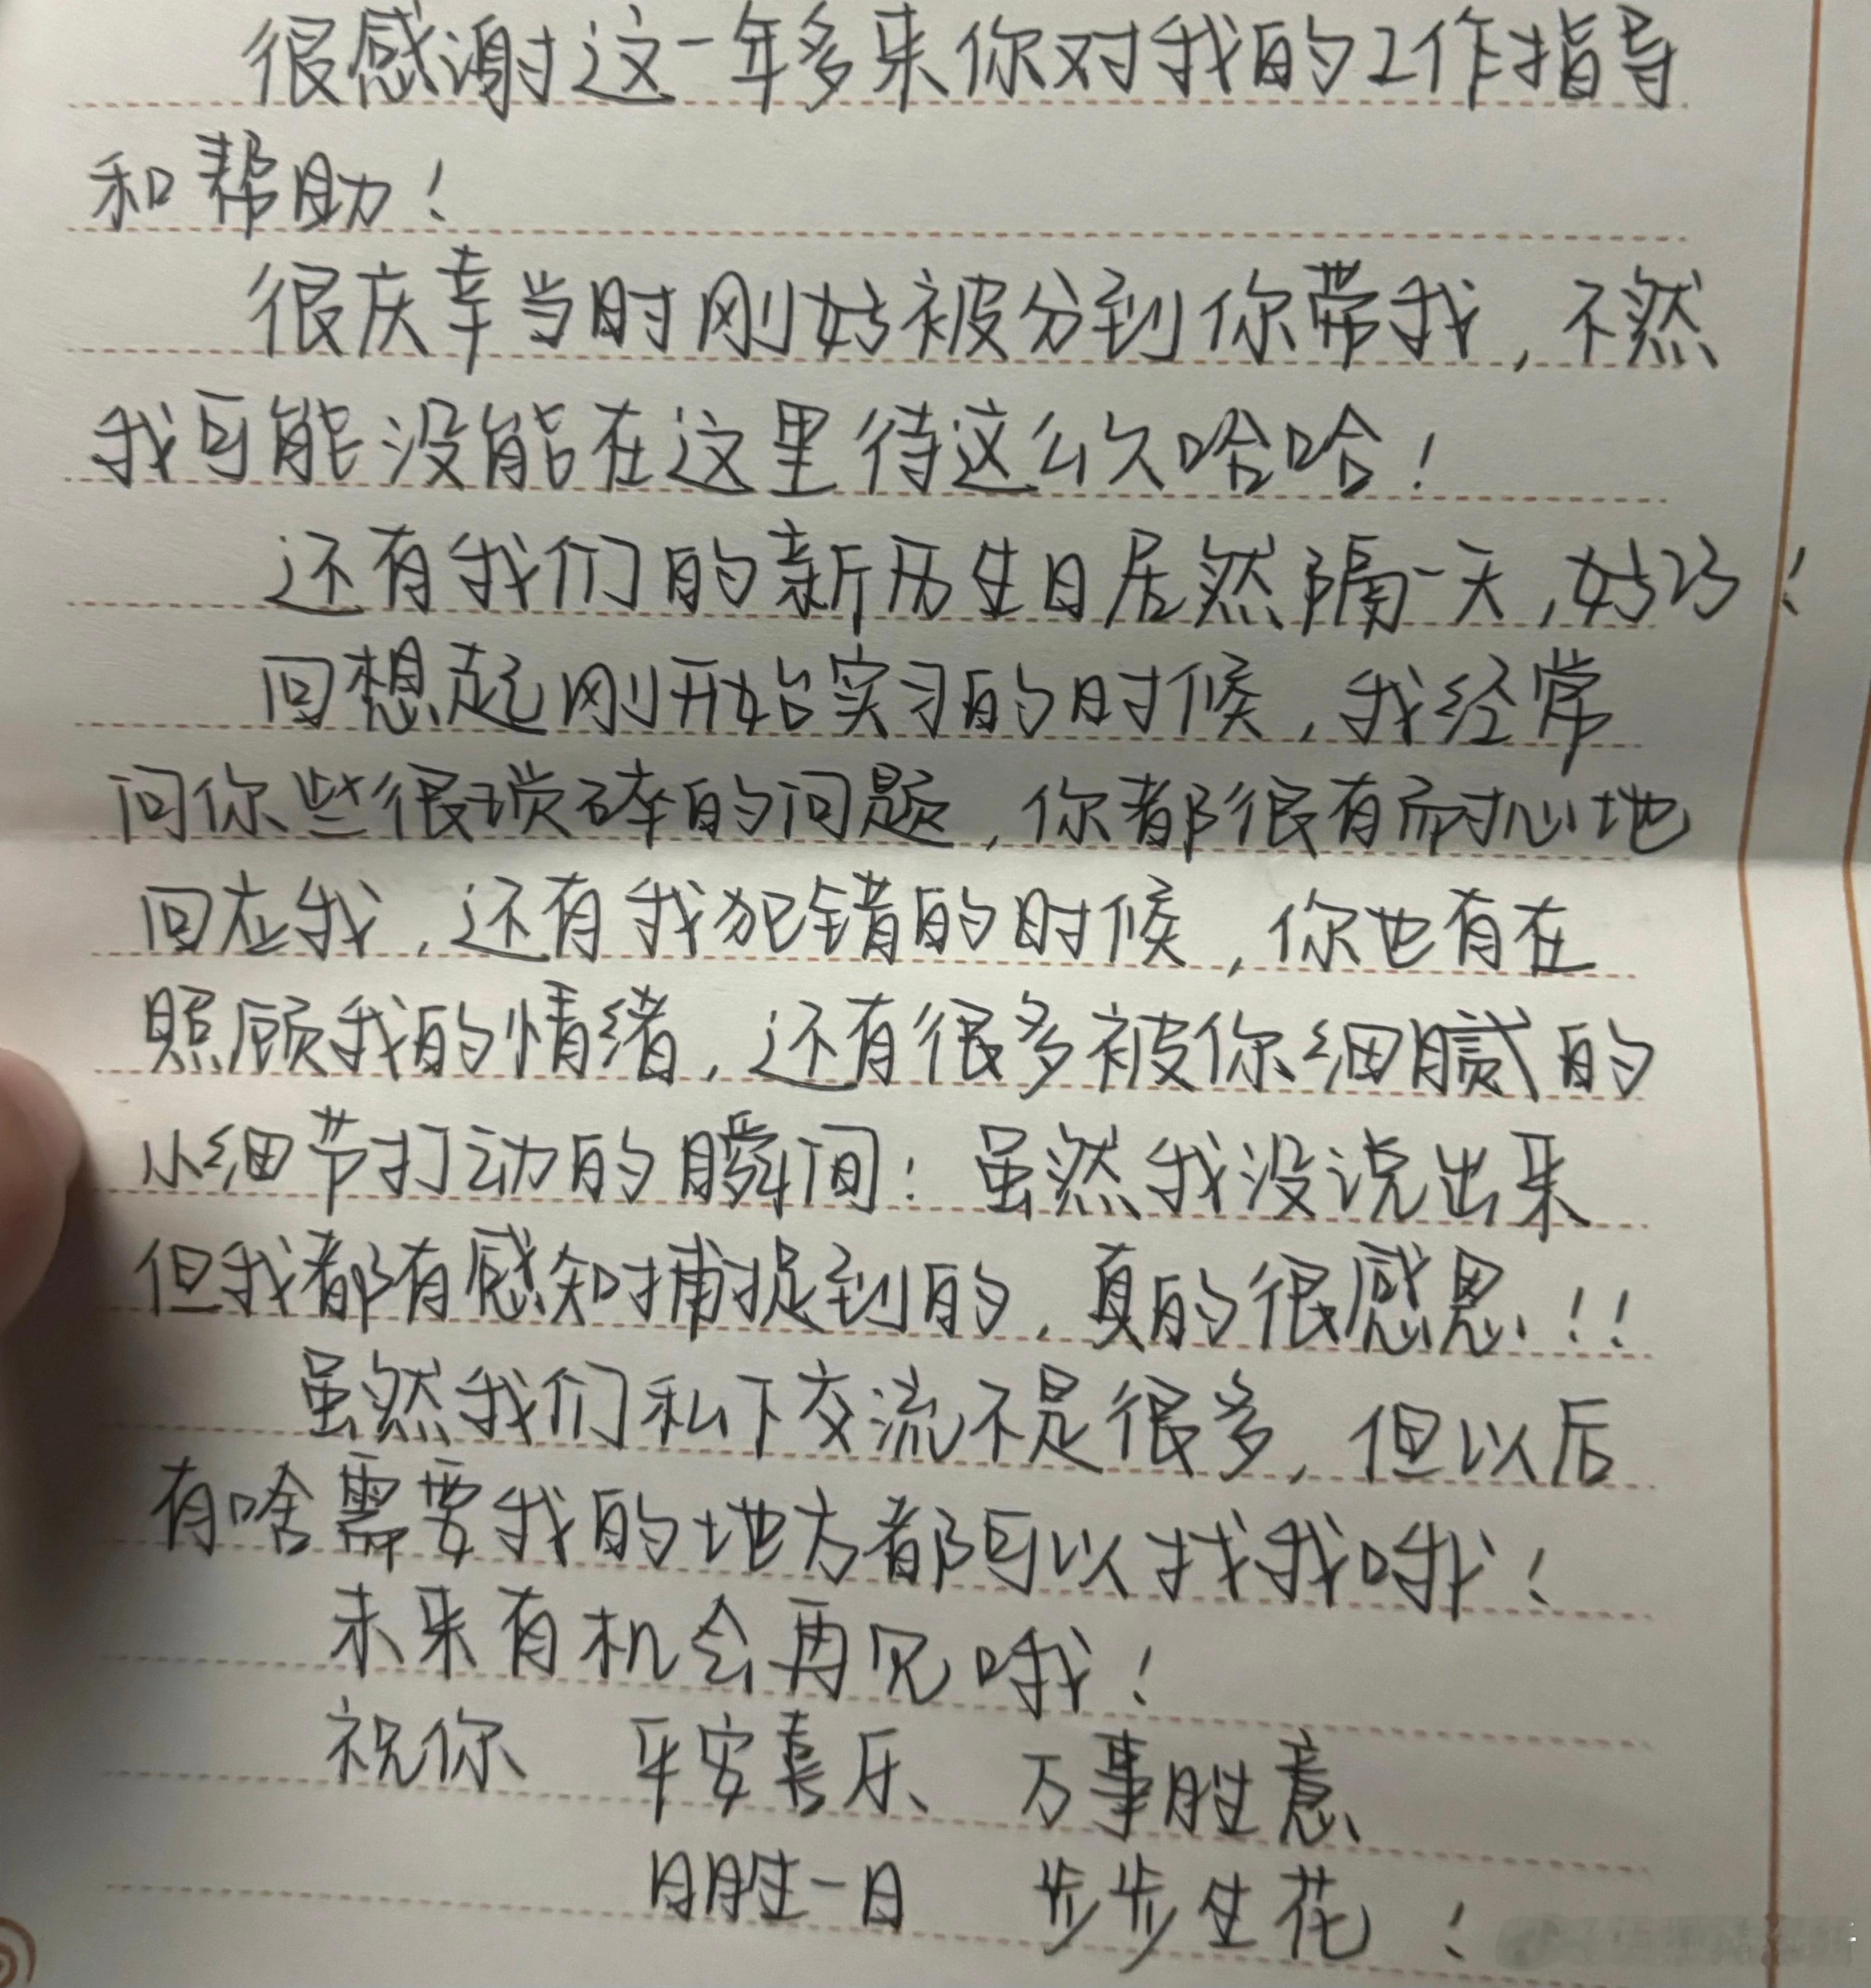 很感谢这一年多来你对我的工作指导
和帮助！
很庆幸当时刚好被分到你带我，不然
我可能没能在这里待这么久哈哈！
还有我们的新历生日居然隔一天，好巧！
回想起刚开始实习的时候，我经常
问你些很琐碎的问题，你都很有耐心地
回应我，还有我犯错的时候，你也有在
照顾我的情绪，还有很多被你细腻的
小细节打动的瞬间！虽然我没说出来
但我都有感知捕捉到的，真的很感恩！！
虽然我们私下交流不是很多，但以后
有啥需要我的地方都可以找我哦！
未来有机会再见哦！
祝你 平安喜乐 万事胜意
日胜一日 步步生花！